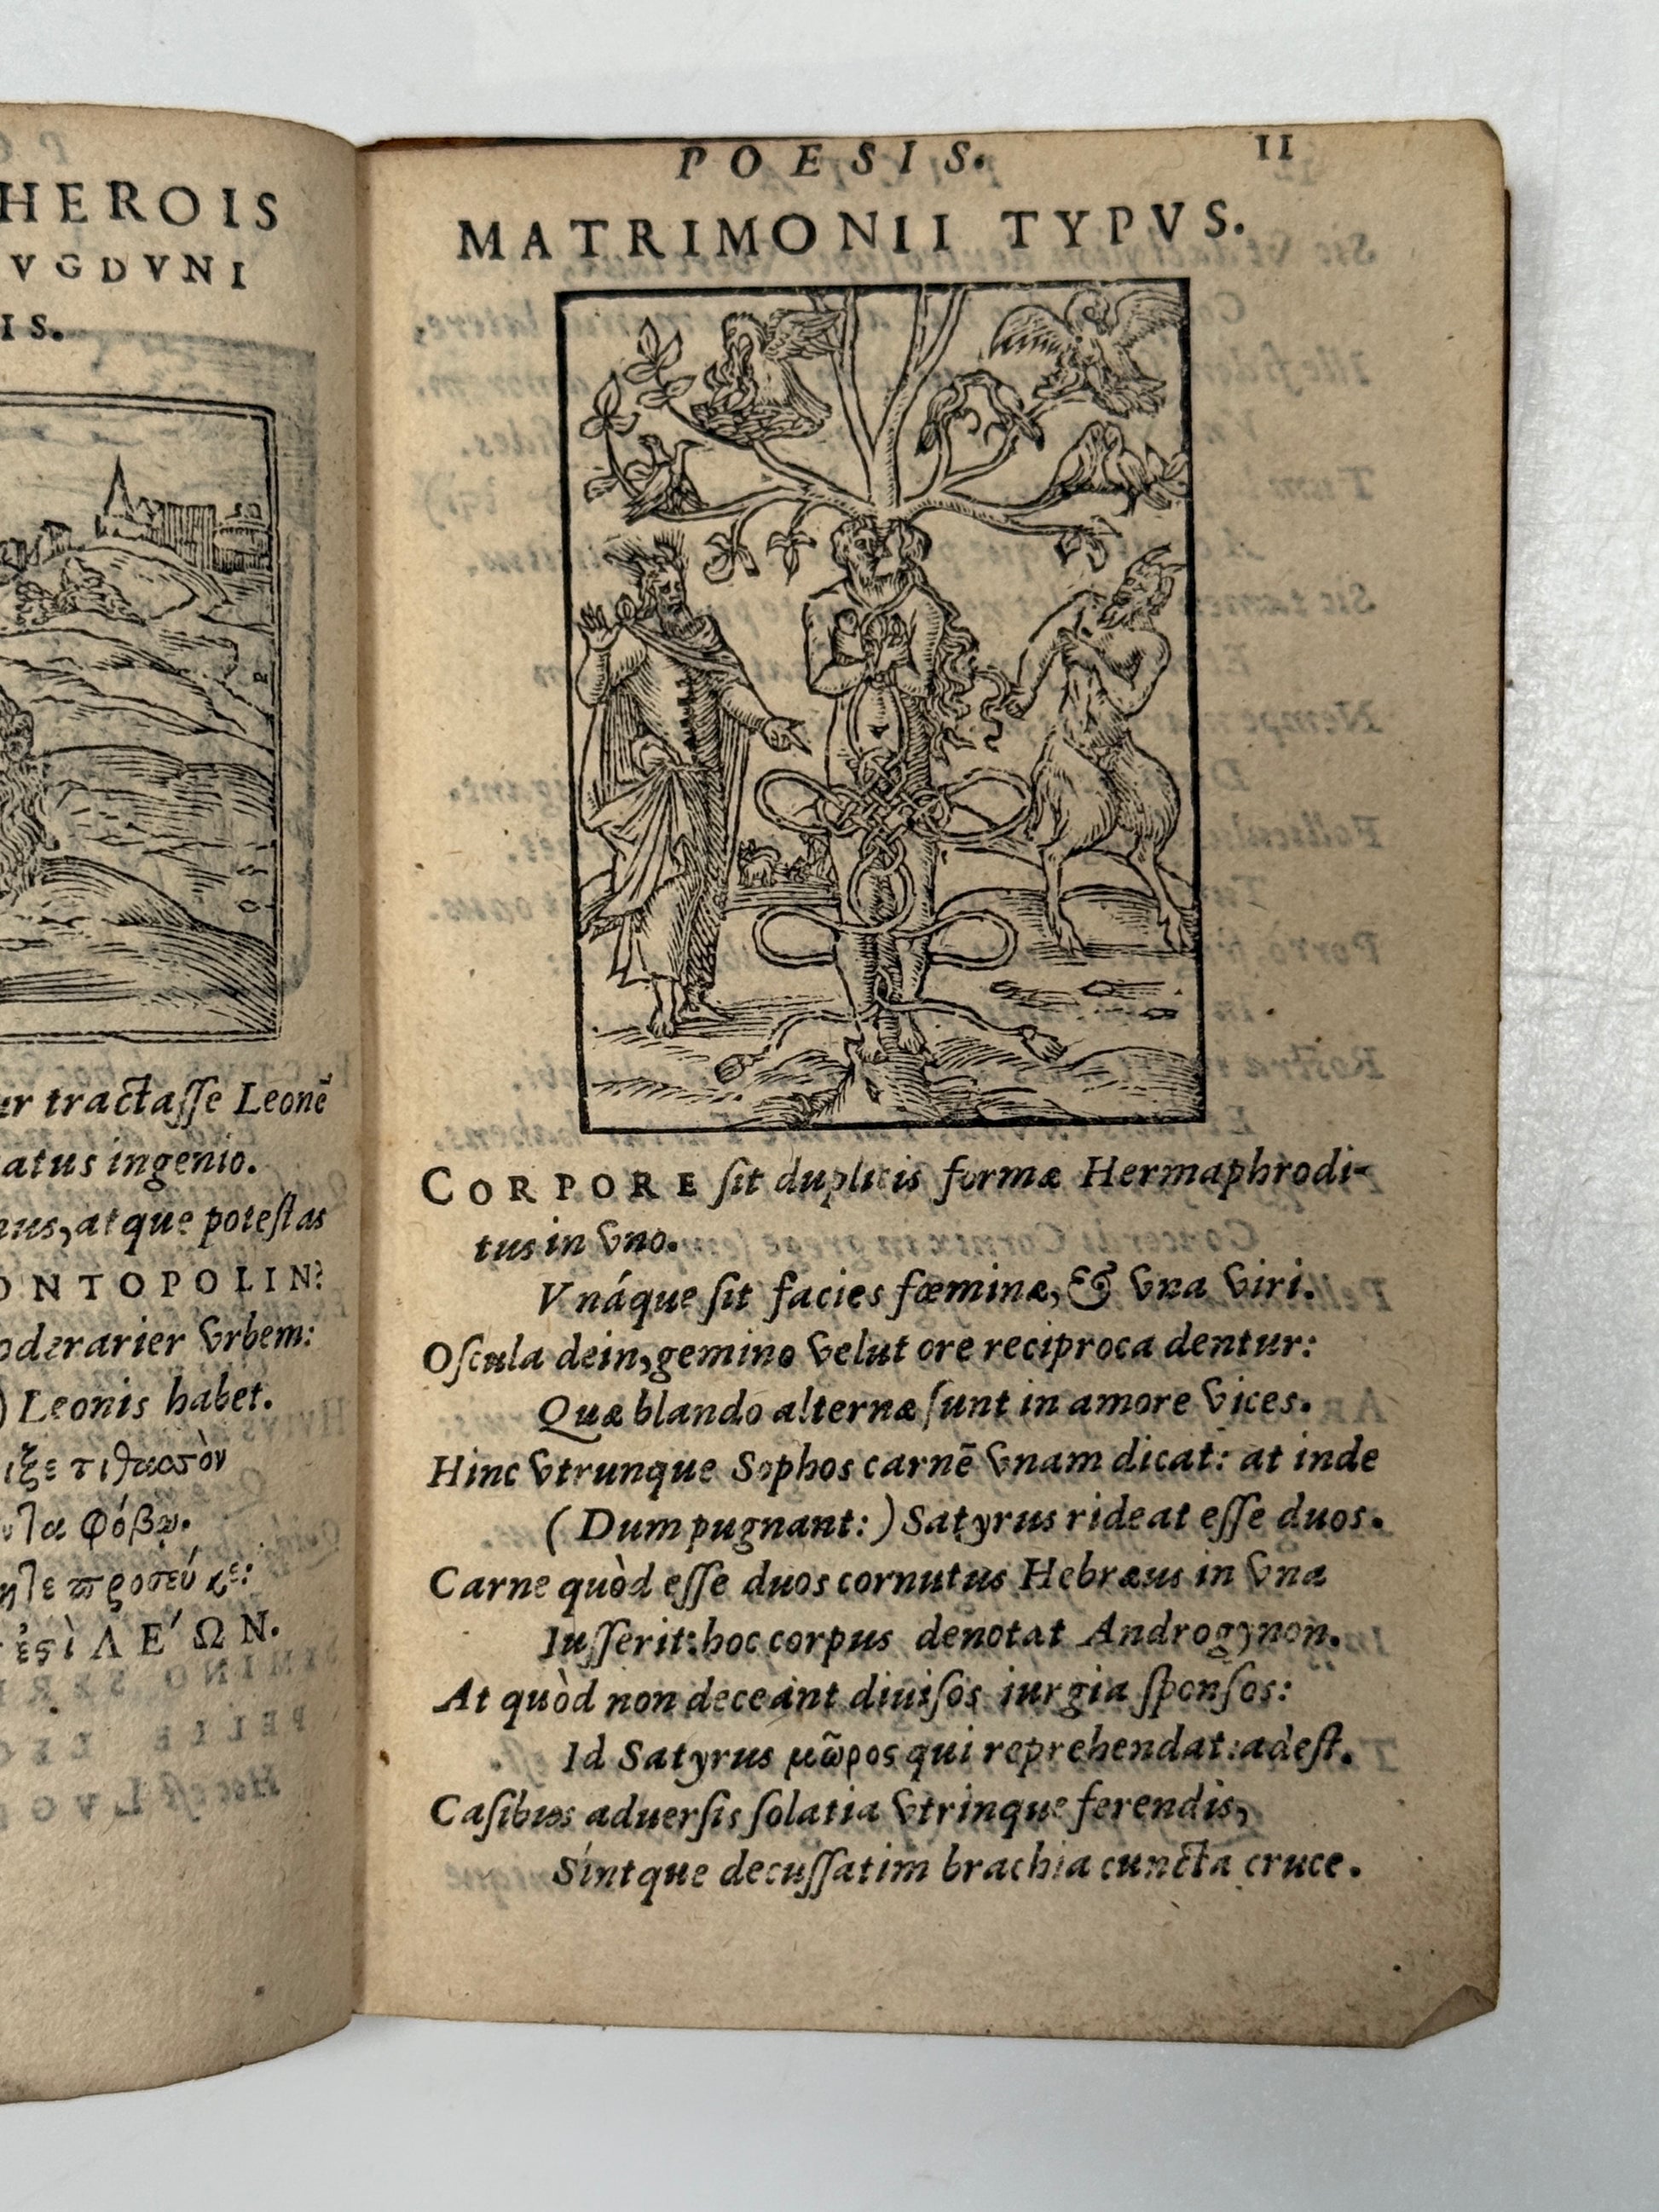 HEROIS
VGDVNI
IS.
ur tractaſſe Leonē
atus ingenio.
nus, atque poteſtas
ONTOPOLIN?
oderarier vrbem:
) Leonis habet.
ιξε τιθασσὸν
φόβῳ.
ἐςὶ ΛΕ΄ΩΝ.
POESIS. 11
MATRIMONII TYPVS.
CORPORE ſit duplicis formæ Hermaphrodi-
tus in vno.
Vnáque ſit facies fœminæ, & vna viri.
Oſcula dein, gemino velut ore reciproca dentur:
Quæ blando alternæ ſunt in amore vices.
Hinc vtrunque Sophos carnē vnam dicat: at inde
(Dum pugnant:) Satyrus rideat eſſe duos.
Carne quòd eſſe duos cornutus Hebræus in vna
Iuſſerit: hoc corpus denotat Androgynon.
At quòd non deceant diuiſos iurgia ſponſos:
Id Satyrus μῶρος qui reprehendat: adeſt.
Caſibus aduerſis ſolatia vtrinque ferendis,
Sintque decuſſatim brachia cuncta cruce.